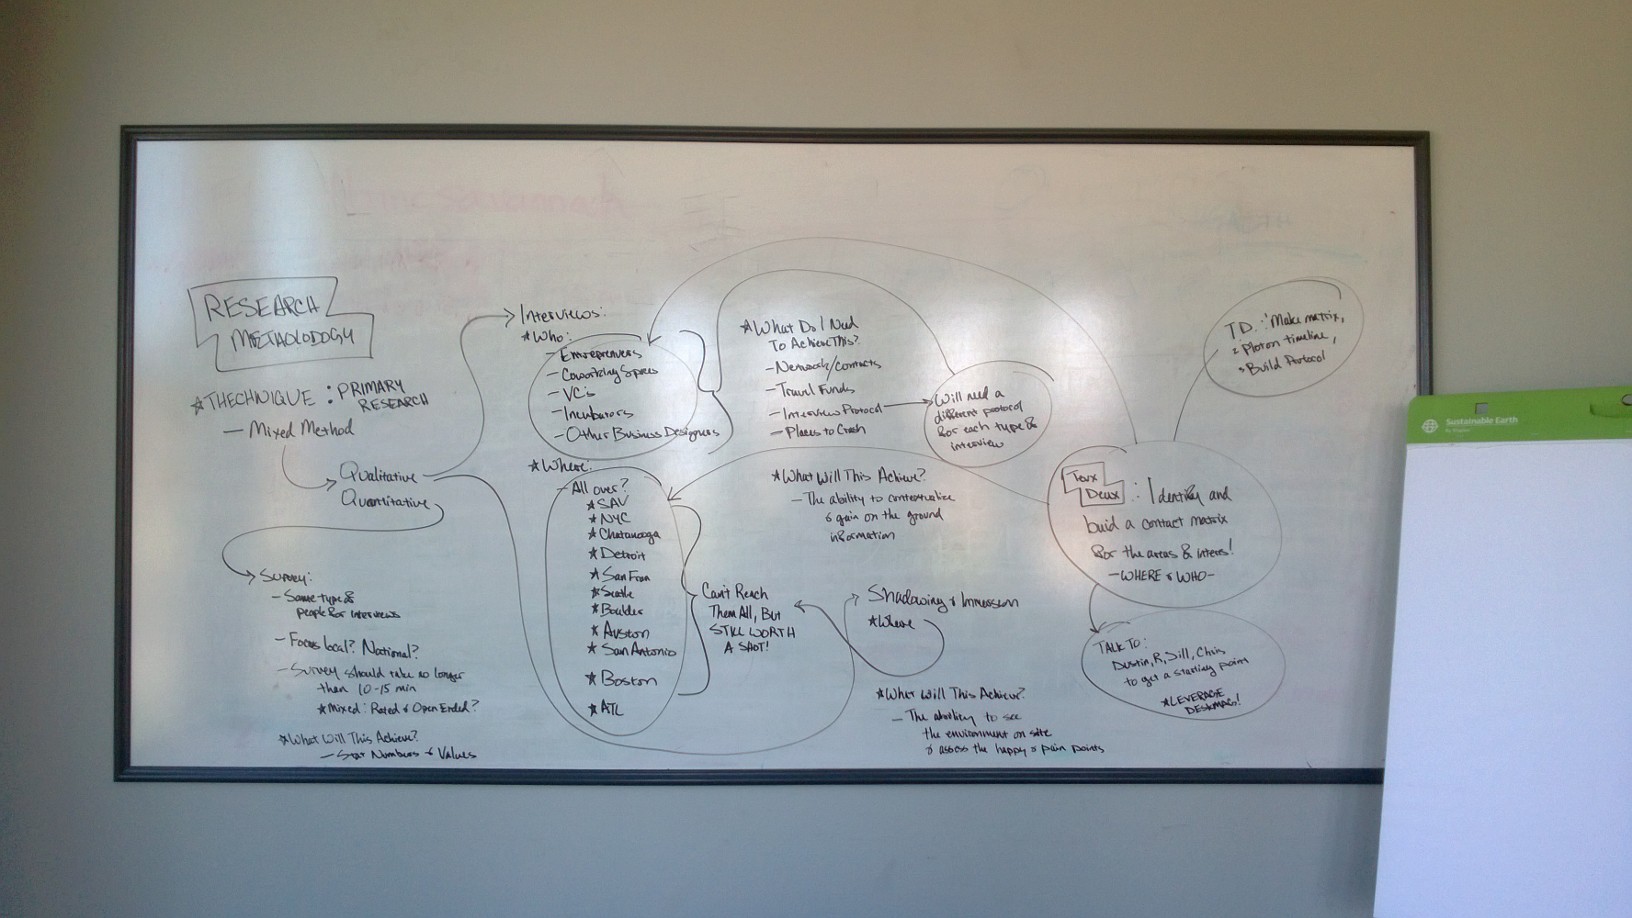 RESEARCH
METHOLODOGY
*THECHNIQUE : PRIMARY
RESEARCH
- Mixed Method
Qualitative
Quantitative
Survey:
- Same type of
people for interviews
- Focus local? National?
- Survey should take no longer
than 10-15 min
*Mixed: Rated & Open Ended?
*What Will This Achieve?
- Stat Numbers & Values
Interviews:
*Who:
- Entreprenuers
- Coworking Spaces
- VC's
- Incubators
- Other Business Designers
*Where:
- All over?
*SAV
*NYC
*Chatanooga
*Detroit
*San Fran
*Seattle
*Boulder
*Auston
*San Antonio
*Boston
*ATL
Can't Reach
Them All, But
STILL WORTH
A SHOT!
*What Do I Need
To Achieve This?
- Network/contacts
- Travel Funds
- Interview Protocol
- Places to Crash
Will need a
different protocol
for each type of
interview
*What Will This Achieve?
- The ability to contextualize
& gain on the ground
information
Shadowing & Immersion
*Where
*What Will This Achieve?
- The ability to see
the environment on site
& assess the happy & pain points
Teux
Deux : Identify and
buid a contact matrix
for the areas & inters!
-WHERE & WHO-
T.D.: Make matrix,
Plot on timeline,
Build Protocol
TALK TO:
Dustin, R, Jill, Chris
to get a starting point
*LEVERAGE
DESKMAG!
Sustainable Earth